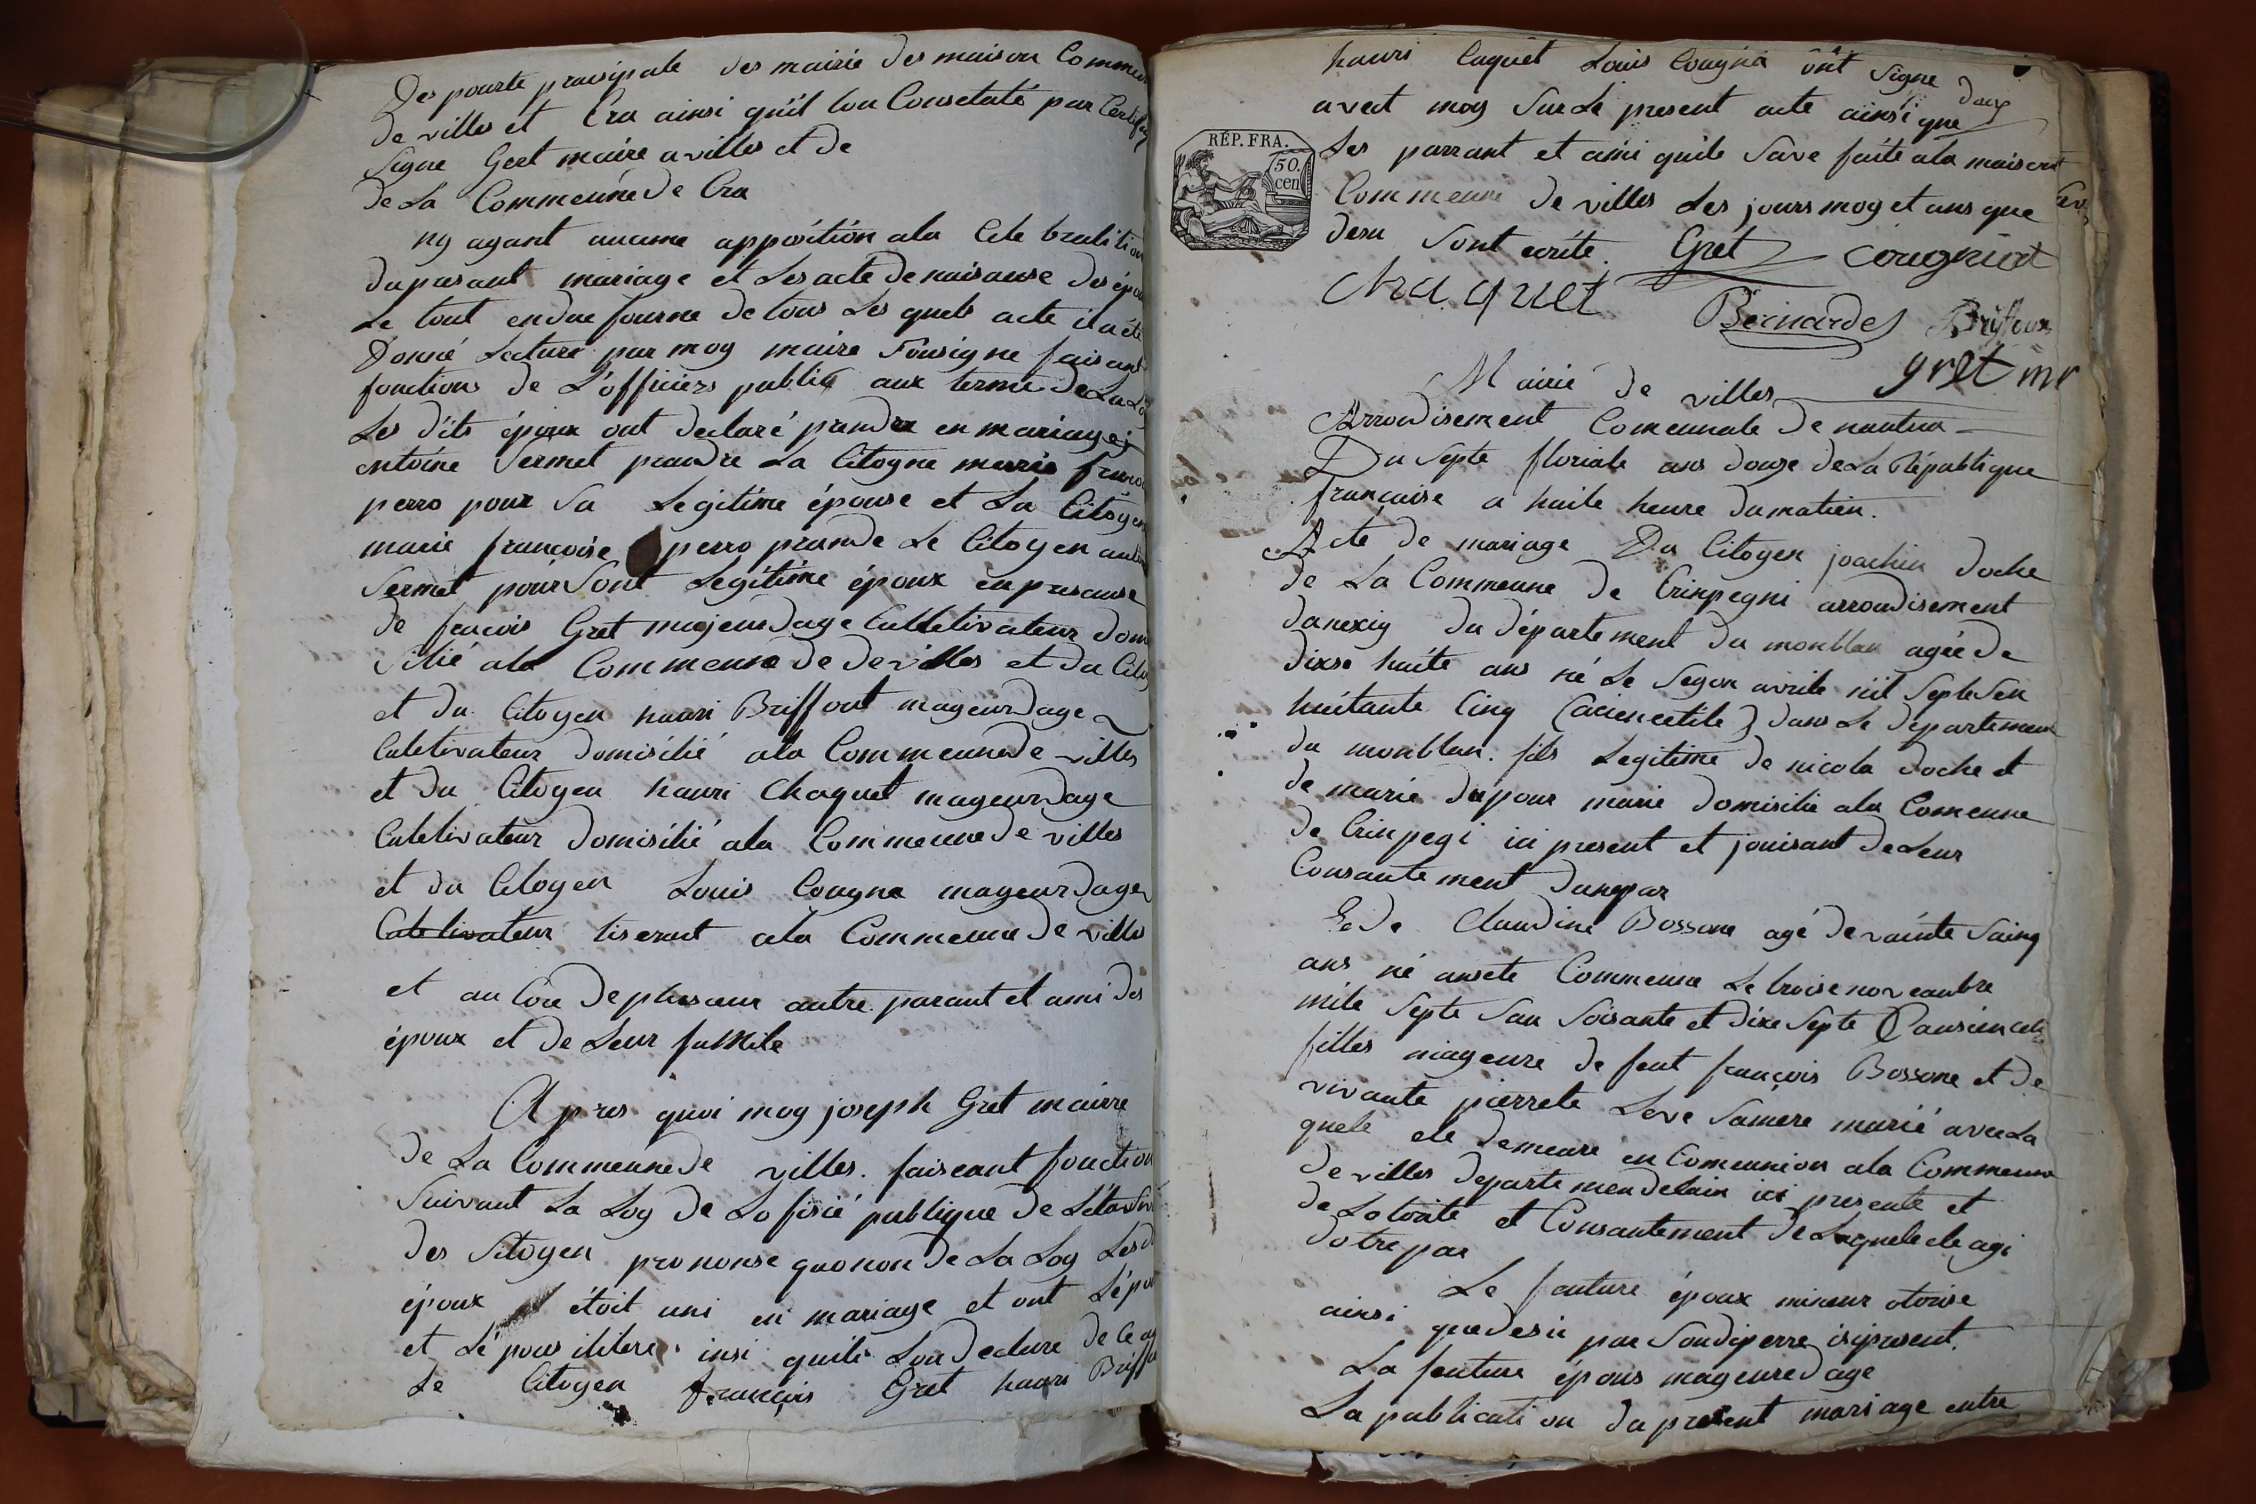 Des pourte prinsipale des mairie des maison Commeu
de villes et Cra ainsi quil lon Consetaté par Certifi
Signe Gret maire a villes et de
de La Commeune de Cra
ny ayant aucune apposition ala Cele bralition
du pasant mariage et Les acte de naisanse des épou
Le tout en due fourme de tous Les quels acte il a été
Donné Lecture par moy maire Sousigne faisant
fonctions de L'officiers public aux terme de La Loy
Les d'its époux ont declaré prandre en mariage
entoine Sermet prandre La Citoyne marie franco
perro pour Sa Legitime épouse et La Citoyen
marie françoise perro prande Le Citoyen anto
Sermet pour Sont Legitime époux en presanse
de francois Gret majeur Dage Culletivateur dom
silié ala Commeune de de villes et du Cito
et du Citoyen hanri Briffout mageur Dage
Culetivateur Domisilié ala Commeune de villes
et du Citoyen hanri Chaquet mageur Dage
Culetivateur Domisilié ala Commeune de villes
et du Citoyen Louis Cougna mageur Dage
Culetivateur tiserant ala Commeune de villes
et au Core de plusieur autre parant et ami des
époux et de Leur famile
Apres quoi moy joseph Gret mairre
de La Commeune de villes. faiseant fonction
Suivant La Loy de Lo fisié publique de Letat Siv
des Sitoyen prononse quonon de La Loy Les d
époux étoit uni en mariage et ont Lépou
et Lé pous ilibre. insi quils Lon declare de Ce
Le Citoyen françois Gret hanri Briffo
hanri Caquet Louis Cougnia ont Signe
avect moy Sur Le present acte ainsi que
deux
Les parrant et ami quile Save faite ala maison
Commeune de villes Les jours moy et ans que
desu Sont ecrite. Gret Cougniat
RÉP. FRA.
50.
cen
Chaquet
Bernardes Briffoux
gret mr
Mairie de villes
Arrondisement Comeunale de nantua
Du Septe floriale ans douze de La République
francaise a huite heure du matien.
Acte de mariage Du Citoyen joachin doche
de La Commeune de Crinpegni arrondisement
danexiy du département du monblan agée de
dixse huite ans né Le Segon avrile mil Septe Sen
huitante Cinq (aciencetile) dans Le département
du monblan. fils Legitime de nicola doche et
de marie dupour marie domisilie ala Comeune
de Crinpegi ici present et jouisant de Leur
Consantement dunepar
Ede Claudine Bossone agé de vainte Sainq
ans né ansete Commeune Le troise noveanbre
mile Septe San Soisante et dixe Septe (ansiencetil
filles mageure de feut françois Bossone et de
vivante pierrete Leve Samere marié avec La
quele ele demeure en Comeunion ala Commeune
de villes departemen delain ici presente et
de Lotorite et Consantement de Laquele ele agi
dotre par
Le fouture époux mineur otorise
ainsi que desu par Soudiperre isipresent.
La fouture épous mageure dage
La publicati on du present mariage entre